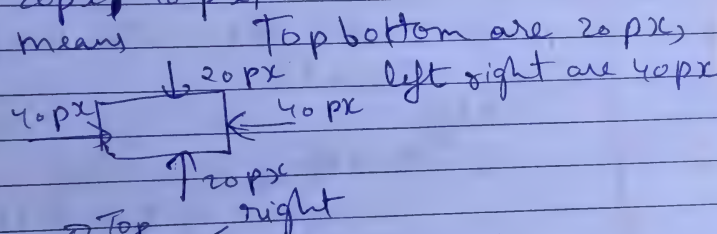 means Top bottom are 20 px,
20 px left right are 40px
40px 40 px
20px
right
Top